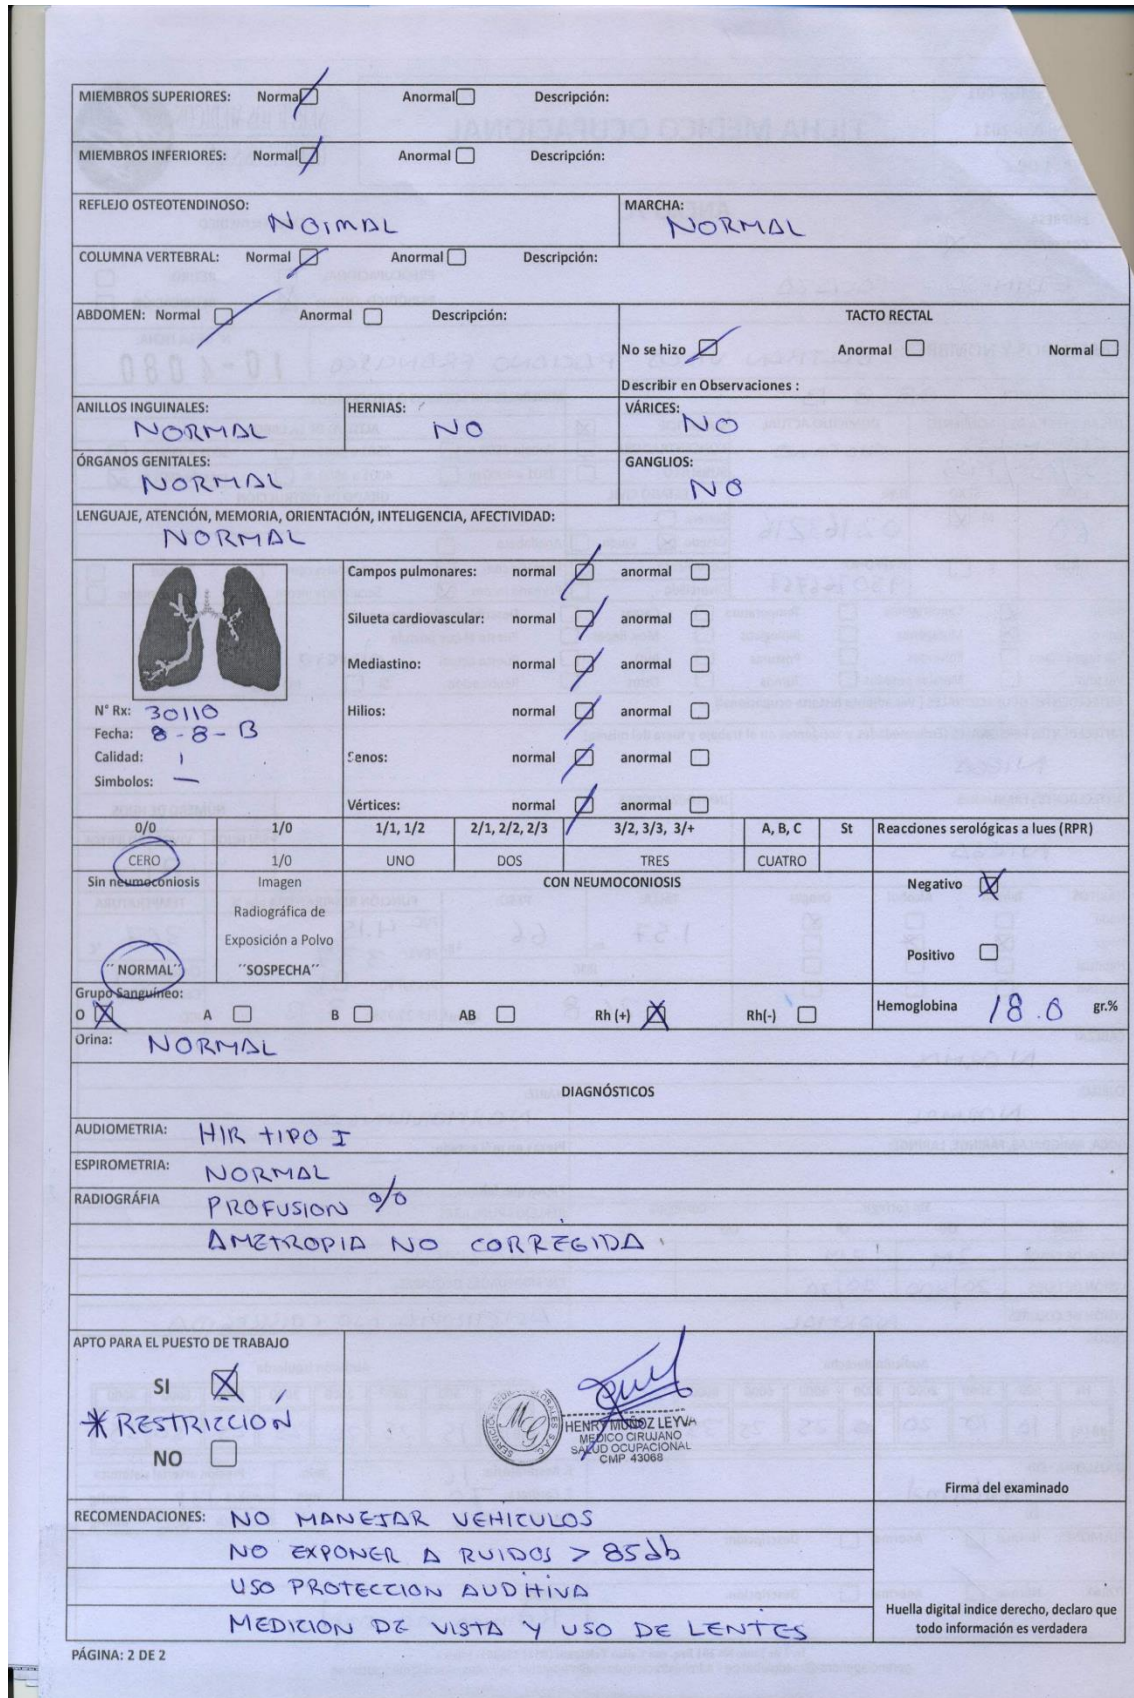 MIEMBROS SUPERIORES: Normal Anormal Descripción:
MIEMBROS INFERIORES: Normal Anormal Descripción:
REFLEJO OSTEOTENDINOSO: MARCHA:
NORMAL NORMAL
COLUMNA VERTEBRAL: Normal Anormal Descripción:
ABDOMEN: Normal Anormal Descripción: TACTO RECTAL
No se hizo Anormal Normal
Describir en Observaciones :
ANILLOS INGUINALES: HERNIAS: VÁRICES:
NORMAL NO NO
ÓRGANOS GENITALES: GANGLIOS:
NORMAL NO
LENGUAJE, ATENCIÓN, MEMORIA, ORIENTACIÓN, INTELIGENCIA, AFECTIVIDAD:
NORMAL
Campos pulmonares: normal anormal
Silueta cardiovascular: normal anormal
Mediastino: normal anormal
N° Rx: 30110 Hilios: normal anormal
Fecha: 8-8-13
Calidad: 1 Senos: normal anormal
Simbolos: —
Vértices: normal anormal
0/0 1/0 1/1, 1/2 2/1, 2/2, 2/3 3/2, 3/3, 3/+ A, B, C St Reacciones serológicas a lues (RPR)
CERO 1/0 UNO DOS TRES CUATRO
Sin neumoconiosis Imagen CON NEUMOCONIOSIS Negativo
Radiográfica de
Exposición a Polvo
Positivo
"NORMAL" "SOSPECHA"
Grupo Sanguíneo:
O A B AB Rh (+) Rh(-) Hemoglobina 18.0 gr.%
Orina: NORMAL
DIAGNÓSTICOS
AUDIOMETRIA: HIR TIPO I
ESPIROMETRIA: NORMAL
RADIOGRÁFIA PROFUSION 0/0
AMETROPIA NO CORREGIDA
APTO PARA EL PUESTO DE TRABAJO
SI
* RESTRICCIÓN
NO
HENRY MUÑOZ LEYVA
MEDICO CIRUJANO
SALUD OCUPACIONAL
CMP 43068
Firma del examinado
RECOMENDACIONES: NO MANEJAR VEHICULOS
NO EXPONER A RUIDOS > 85db
USO PROTECCION AUDITIVA
MEDICION DE VISTA Y USO DE LENTES
Huella digital indice derecho, declaro que
todo información es verdadera
PÁGINA: 2 DE 2